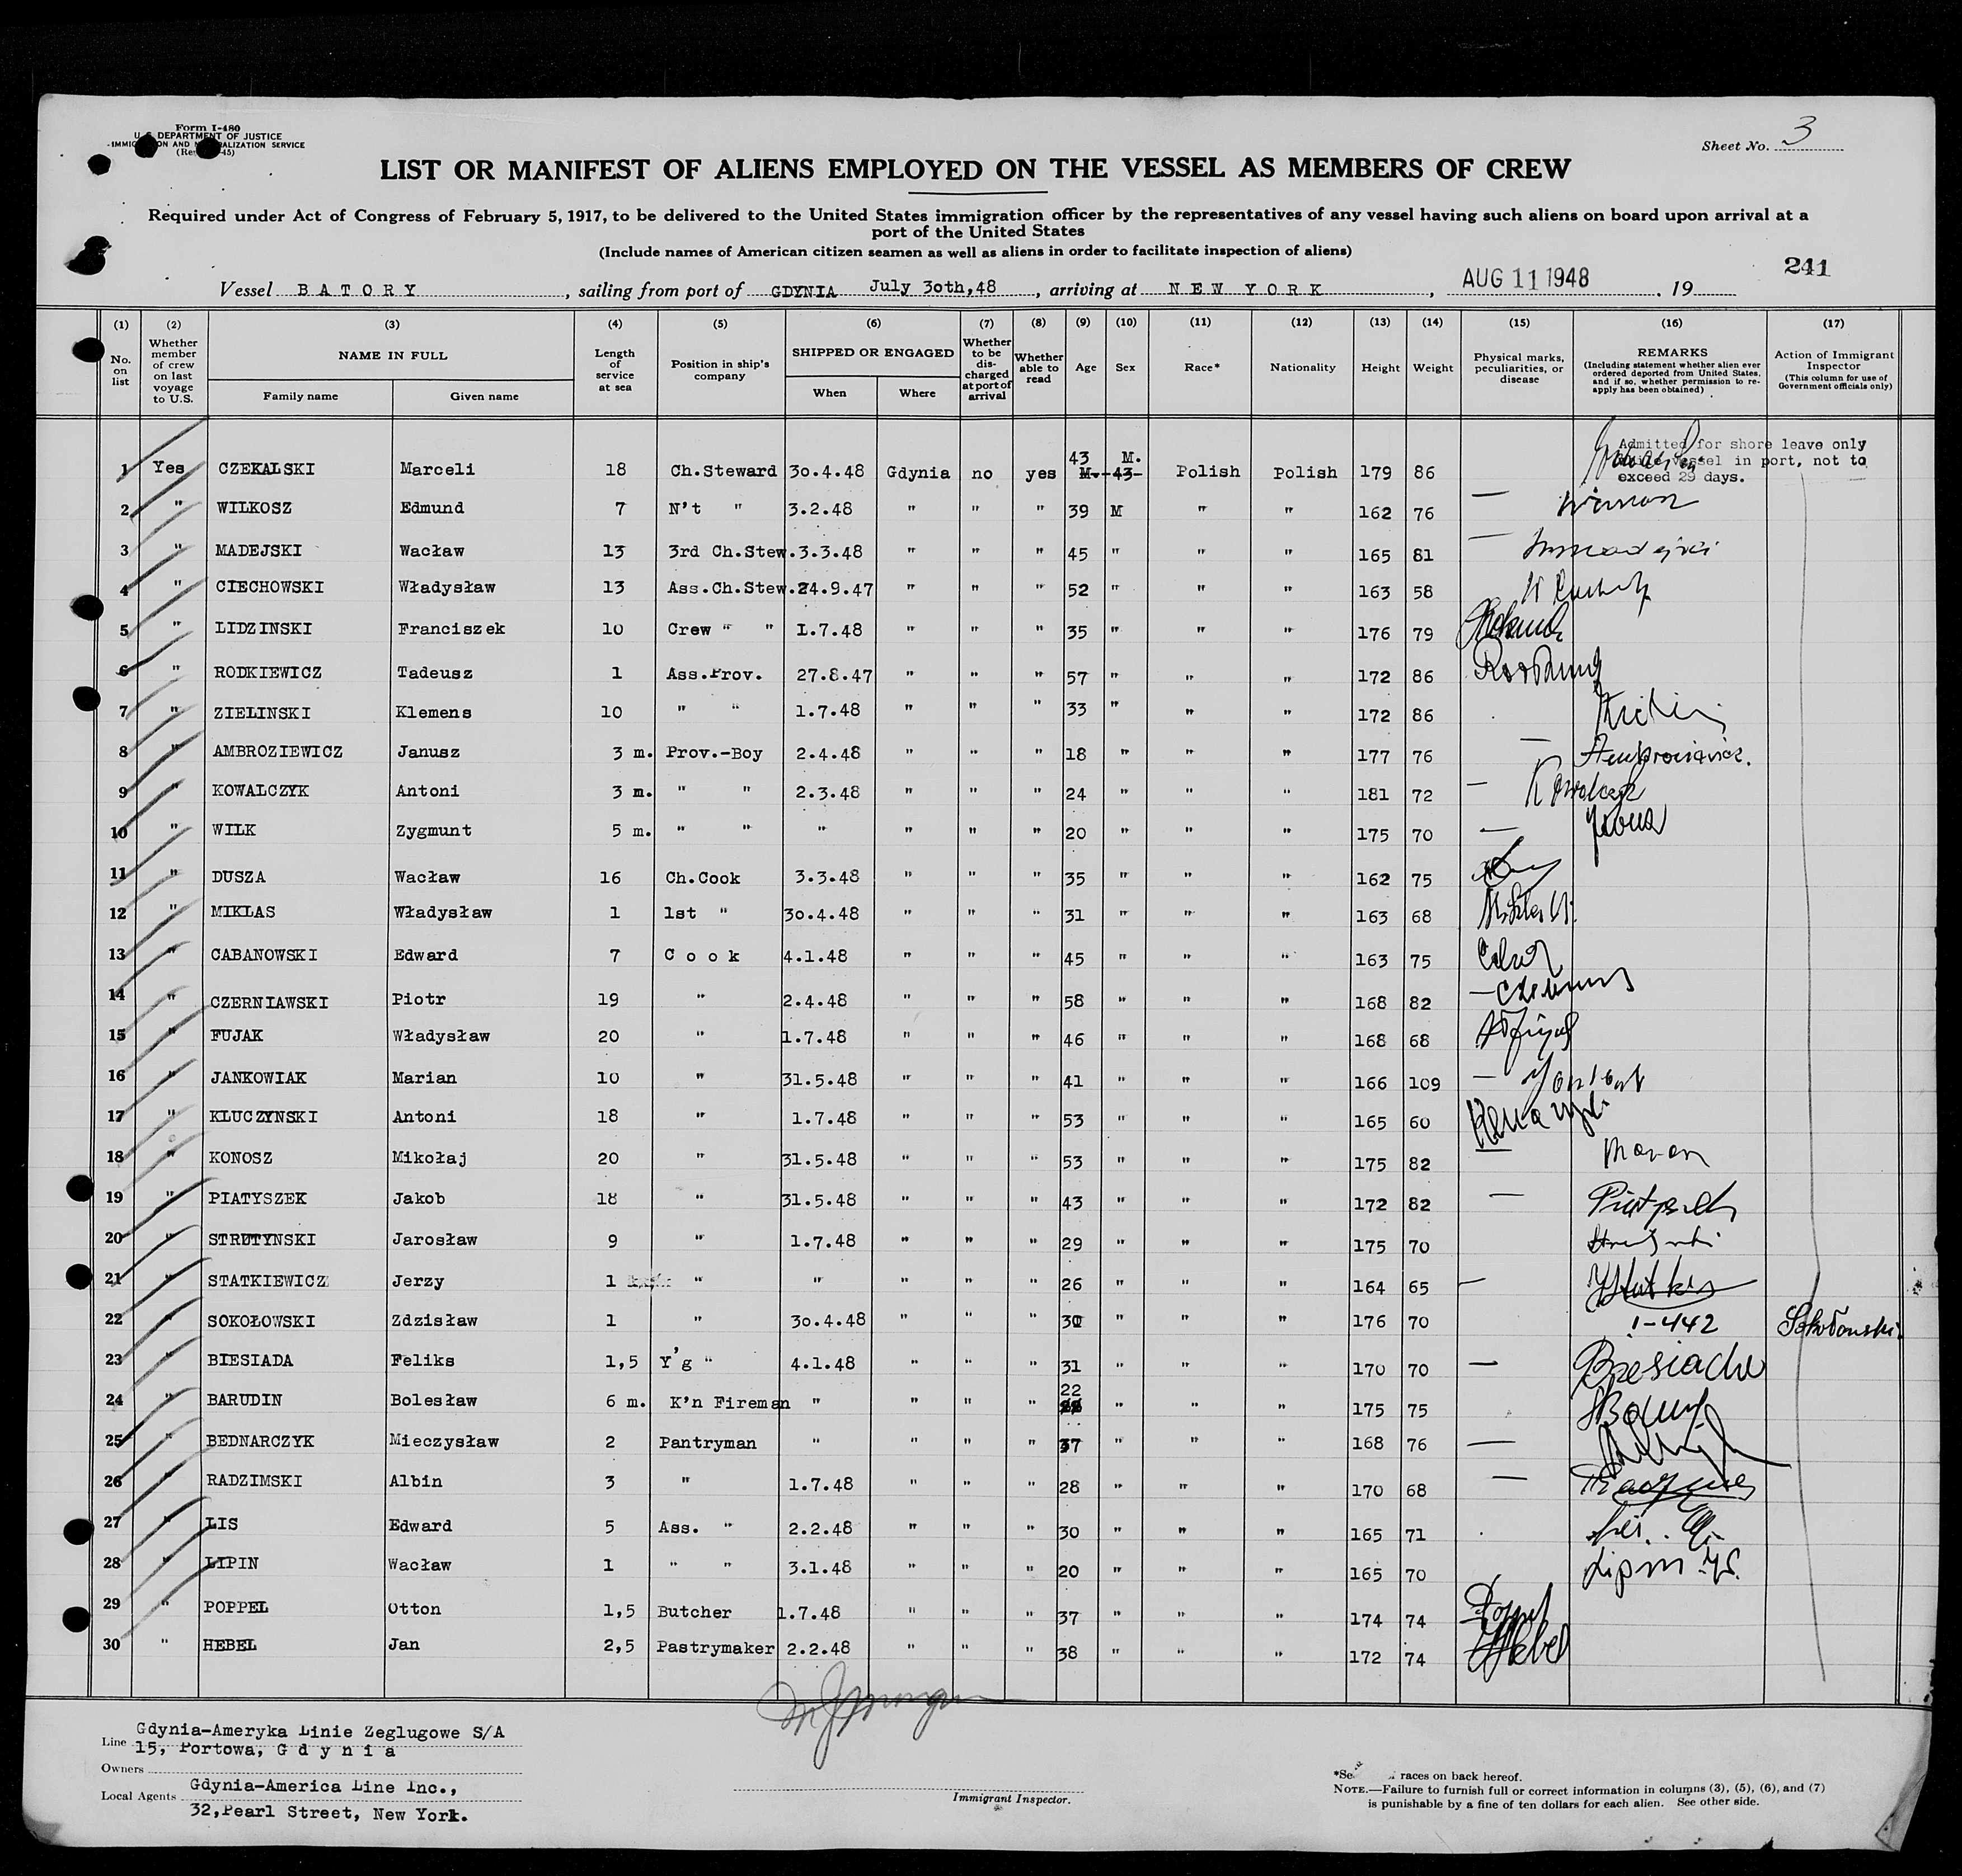 Form I-480
U. S. DEPARTMENT OF JUSTICE
IMMIGRATION AND NATURALIZATION SERVICE
Sheet No. 3
LIST OR MANIFEST OF ALIENS EMPLOYED ON THE VESSEL AS MEMBERS OF CREW
Required under Act of Congress of February 5, 1917, to be delivered to the United States immigration officer by the representatives of any vessel having such aliens on board upon arrival at a
port of the United States
(Include names of American citizen seamen as well as aliens in order to facilitate inspection of aliens)
241
Vessel BATORY, sailing from port of GDYNIA July 30th,48, arriving at NEW YORK, AUG 11 1948, 19
(1) (2) (3) (4) (5) (6) (7) (8) (9) (10) (11) (12) (13) (14) (15) (16) (17)
No. on list
Whether member of crew on last voyage to U.S.
NAME IN FULL
Family name
Given name
Length of service at sea
Position in ship's company
SHIPPED OR ENGAGED
When
Where
Whether to be discharged at port of arrival
Whether able to read
Age
Sex
Race*
Nationality
Height
Weight
Physical marks, peculiarities, or disease
REMARKS
(Including statement whether alien ever ordered deported from United States, and if so, whether permission to reapply has been obtained)
Action of Immigrant Inspector
(This column for use of Government officials only)
Admitted for shore leave only
while vessel in port, not to
exceed 29 days.
1 Yes CZEKALSKI Marceli 18 Ch.Steward 30.4.48 Gdynia no yes 43 M. M. 43 Polish Polish 179 86
2 " WILKOSZ Edmund 7 N't " 3.2.48 " " " 39 M " " 162 76 —
3 " MADEJSKI Wacław 13 3rd Ch.Stew. 3.3.48 " " " 45 " " " 165 81 —
4 " CIECHOWSKI Władysław 13 Ass.Ch.Stew. 24.9.47 " " " 52 " " " 163 58
5 " LIDZINSKI Franciszek 10 Crew " " 1.7.48 " " " 35 " " " 176 79
6 " RODKIEWICZ Tadeusz 1 Ass.Prov. 27.8.47 " " " 57 " " " 172 86
7 " ZIELINSKI Klemens 10 " " 1.7.48 " " " 33 " " " 172 86
8 " AMBROZIEWICZ Janusz 3 m. Prov.-Boy 2.4.48 " " " 18 " " " 177 76 —
9 " KOWALCZYK Antoni 3 m. " " 2.3.48 " " " 24 " " " 181 72 — Kowalczyk
10 " WILK Zygmunt 5 m. " " " " " " 20 " " " 175 70 —
11 " DUSZA Wacław 16 Ch.Cook 3.3.48 " " " 35 " " " 162 75
12 " MIKLAS Władysław 1 1st " 30.4.48 " " " 31 " " " 163 68 Miklas W.
13 " CABANOWSKI Edward 7 Cook 4.1.48 " " " 45 " " " 163 75
14 " CZERNIAWSKI Piotr 19 " 2.4.48 " " " 58 " " " 168 82 —
15 " FUJAK Władysław 20 " 1.7.48 " " " 46 " " " 168 68
16 " JANKOWIAK Marian 10 " 31.5.48 " " " 41 " " " 166 109 —
17 " KLUCZYNSKI Antoni 18 " 1.7.48 " " " 53 " " " 165 60
18 " KONOSZ Mikołaj 20 " 31.5.48 " " " 53 " " " 175 82 —
19 " PIATYSZEK Jakob 18 " 31.5.48 " " " 43 " " " 172 82 —
20 " STRUTYNSKI Jarosław 9 " 1.7.48 " " " 29 " " " 175 70
21 " STATKIEWICZ Jerzy 1 " " " " " 26 " " " 164 65 —
22 " SOKOŁOWSKI Zdzisław 1 " 30.4.48 " " " " " " 176 70 I-442 Sokołowski
23 " BIESIADA Feliks 1,5 Y'g " 4.1.48 " " " 31 " " " 170 70 — Biesiada
24 " BARUDIN Bolesław 6 m. K'n Fireman " " " " 22 " " " 175 75
25 " BEDNARCZYK Mieczysław 2 Pantryman " " " " 37 " " " 168 76 —
26 " RADZIMSKI Albin 3 " 1.7.48 " " " 28 " " " 170 68 —
27 " LIS Edward 5 Ass. " 2.2.48 " " " 30 " " " 165 71 Lis
28 " LIPIN Wacław 1 " " 3.1.48 " " " 20 " " " 165 70 Lipin
29 " POPPEL Otton 1,5 Butcher 1.7.48 " " " 37 " " " 174 74 Poppel
30 " HEBEL Jan 2,5 Pastrymaker 2.2.48 " " " 38 " " " 172 74 Hebel
Line Gdynia-Ameryka Linie Zeglugowe S/A
15, Portowa, Gdynia
Owners
Local Agents Gdynia-America Line Inc.,
32,Pearl Street, New York.
Immigrant Inspector.
races on back hereof.
NOTE.—Failure to furnish full or correct information in columns (3), (5), (6), and (7)
is punishable by a fine of ten dollars for each alien. See other side.